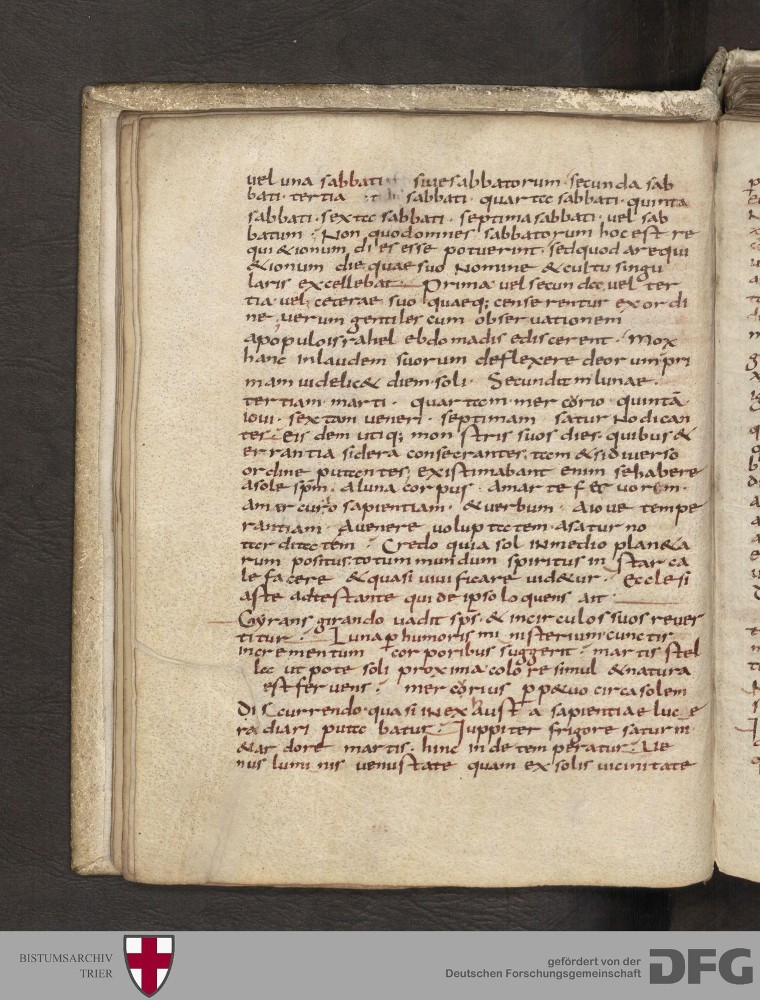 uel una sabbati siue sabbatorum · secunda sab
bati · tertia sabbati · quarta sabbati · quinta
sabbati · sexta sabbati · septima sabbati · uel sab
batum · Non quod omnes sabbatorum hoc est re
qui&ionum dies esse potuerint · sed quod arequi
&ionum die quae suo Nomine & cultu singu
laris excellebat · Prima uel secunda uel ter
tia uel ceterae suo quaeq; censerentur ex ordi
ne · uerum gentiles cum obseruationem
apopulo israhel ebdomadis ediscerent · Mox
hanc inlaudem suorum deflexere deorum pri
mam uidelic& diem soli · Secundam lunae ·
tertiam marti · quartam mercorio quintā
ioui · sextam ueneri · septimam saturno dican
tes · Eis dem utiq; monstris suos dies · quibus &
errantia sidera consecrantes, tam & si diuerso
ordine puttantes, existimabant enim se habere
asole spm · aluna corpus · amarte feruorem ·
amercurio sapientiam · & uerbum · aioue tempe
rantiam · auenere uoluptatem · asaturno
tarditatem · Credo quia sol inmedio plan&a
rum positus totum mundum spiritus instar ca
lefacere & quasi uiuificare uid&ur · Ecclesi
aste adtestante qui de ipso loquens ait ·
Gyrans girando uadit sps · & incirculos suos reuer
titur · Luna p humoris ministerium cunctis
incrementum corporibus suggerit · martis stel
la ut pote soli proxima colore simul & natura
est feruens · mercorius pp&uo circa solem
Discurrendo quasi inexhausta sapientiae luce
radiari puttabatur · Iuppiter frigore saturni
& ardore martis · hinc inde temperatur · Ue
nus luminis uenustate quam ex solis uicinitate
BISTUMSARCHIV
TRIER
gefördert von der
Deutschen Forschungsgemeinschaft
DFG